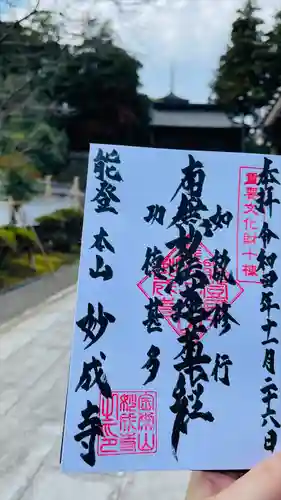 奉拝
令和四年十一月二十六日
重要文化財十棟
如説修行
南無妙法蓮華経
功徳甚多
能登
本山
妙成寺
金榮山
妙成寺
之印